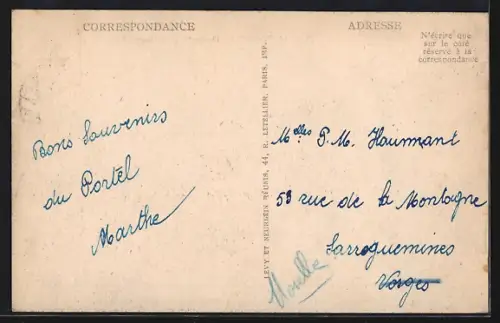 CORRESPONDANCE
ADRESSE
N'écrire que
sur le côté
réservé à la
correspondance
Bons Souvenirs
du Portel
Marthe
LEVY ET NEURDEIN RÉUNIS, 44, R. LETELLIER, PARIS, IMP.
Melles P. M. Haumant
53 rue de la Montagne
Sarreguemines
Vosges
Moselle